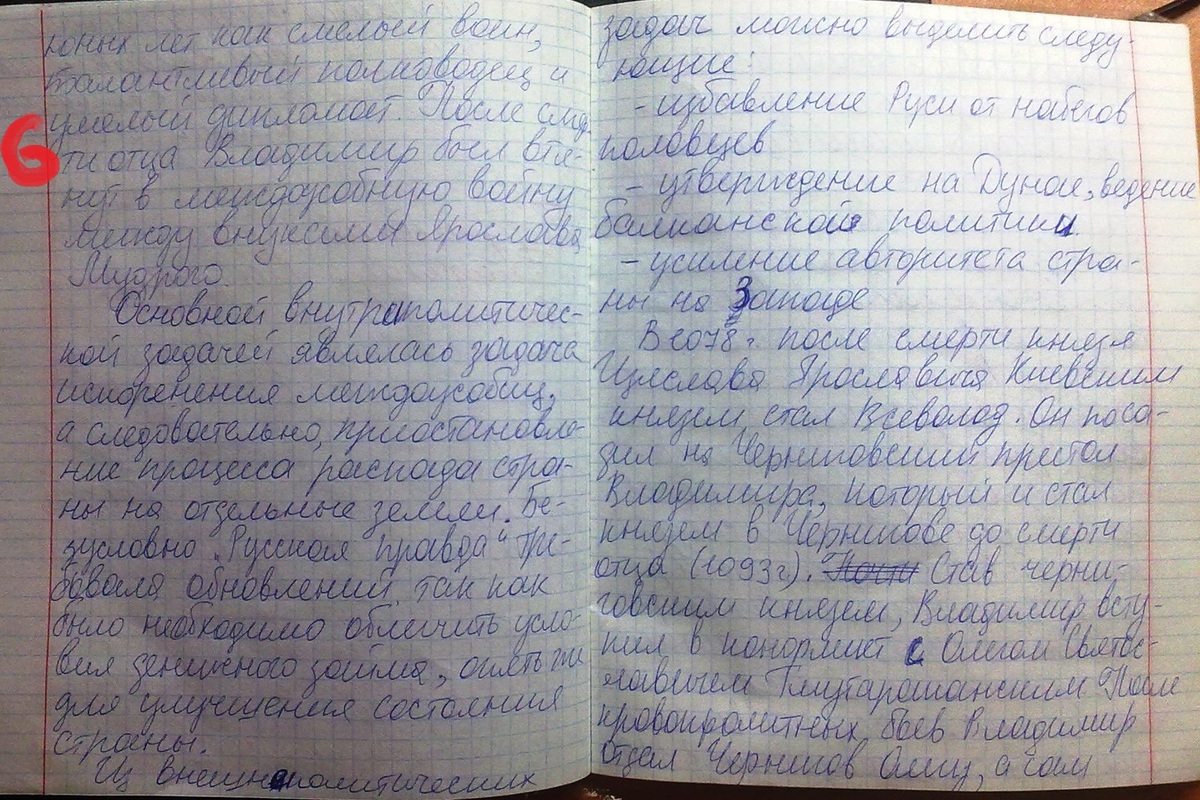 юных лет как смелый воин,
талантливый полководец и
умелый дипломат. После смер-
6
ти отца Владимир был втя-
нут в междоусобную войну
между внуками Ярослава
Мудрого.
Основной внутриполитичес-
кой задачей являлась задача
искоренения междоусобиц,
а следовательно, приостановле-
ние процесса распада стра-
ны на отдельные земли. Бе-
зусловно „Русская правда" тре-
бовала обновлений, так как
было необходимо облегчить усло-
вия денежного займа, опять же
для улучшения состояния
страны.
Из внешнеполитических
задач можно выделить следу-
ющие:
- избавление Руси от набегов
половцев
- утверждение на Дунае, ведение
балканской политики
- усиление авторитета стра-
ны на Западе
В 1078г. после смерти князя
Изяслава Ярославича Киевским
князем стал Всеволод. Он поса-
дил на Черниговский престол
Владимира, который и стал
князем в Чернигове до смерти
отца (1093г). Почти Став черни-
говским князем, Владимир всту-
пил в конфликт с Олегом Святос-
лавичем Тмутараканским. После
кровопролитных боев Владимир
отдал Чернигов Олегу, а сам